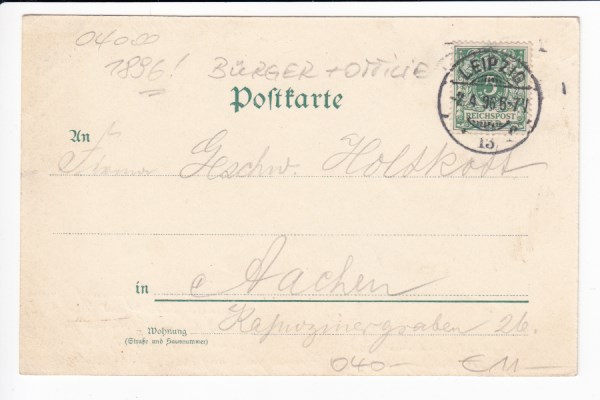 04000
1896! BÜRGER + OTTILIE
Postkarte
LEIPZIG
2.4.96 6-7N
13
5
REICHSPOST
An
Firma Geschw. Holtkott
in Aachen
Wohnung
(Straße und Hausnummer)
Kapuzinergraben 26.
040- €11-